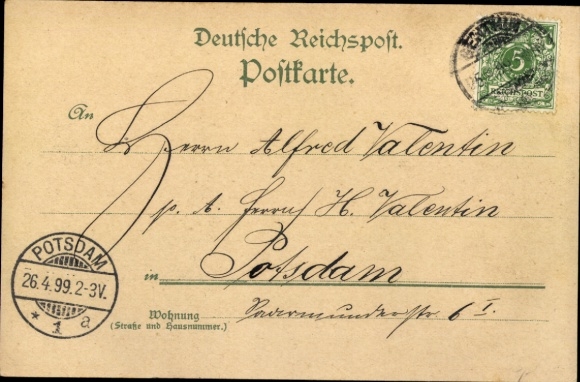 Deutsche Reichspost.
Postkarte.
5
REICHSPOST
An
Herrn Alfred Valentin
p. A. Herrn H. Valentin
in Potsdam
Wohnung
(Straße und Hausnummer.)
6 I.
POTSDAM
26.4.99.2-3V.
* 1 a